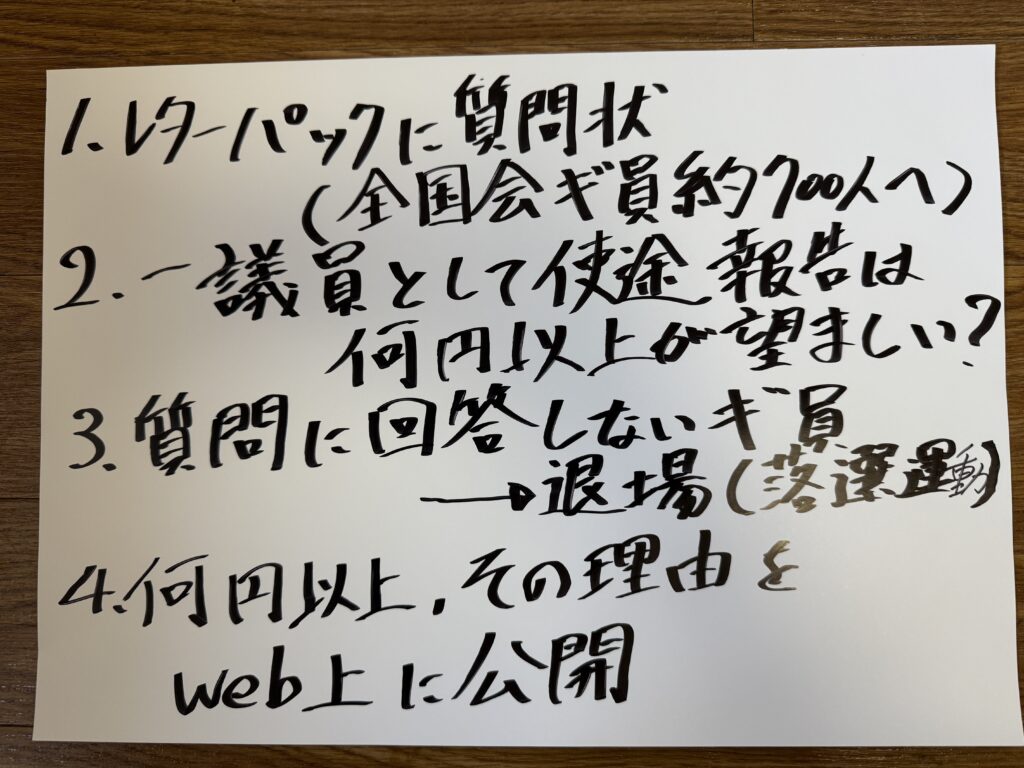 1、レターパックに質問状
(全国会ギ員約700人へ)
2.一議員として使途報告は
何円以上が望ましい?
3.質問に回答しないギ員
→退場(落選運動)
4.何円以上、その理由を
web上に公開